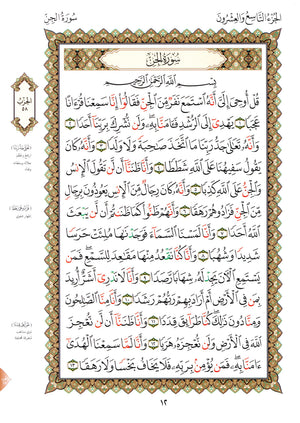 الجزء التاسع والعشرون
سورة الجن
سورة الجن
بسم الله الرحمن الرحيم
قُلْ أُوحِيَ إِلَيَّ أَنَّهُ اسْتَمَعَ نَفَرٌ مِنَ الْجِنِّ فَقَالُوا إِنَّا سَمِعْنَا قُرْآنًا
عَجَبًا ١ يَهْدِي إِلَى الرُّشْدِ فَآمَنَّا بِهِ وَلَنْ نُشْرِكَ بِرَبِّنَا أَحَدًا ٢
وَأَنَّهُ تَعَالَى جَدُّ رَبِّنَا مَا اتَّخَذَ صَاحِبَةً وَلَا وَلَدًا ٣ وَأَنَّهُ كَانَ
يَقُولُ سَفِيهُنَا عَلَى اللَّهِ شَطَطًا ٤ وَأَنَّا ظَنَنَّا أَنْ لَنْ تَقُولَ الْإِنْسُ
وَالْجِنُّ عَلَى اللَّهِ كَذِبًا ٥ وَأَنَّهُ كَانَ رِجَالٌ مِنَ الْإِنْسِ يَعُوذُونَ بِرِجَالٍ
مِنَ الْجِنِّ فَزَادُوهُمْ رَهَقًا ٦ وَأَنَّهُمْ ظَنُّوا كَمَا ظَنَنْتُمْ أَنْ لَنْ يَبْعَثَ
اللَّهُ أَحَدًا ٧ وَأَنَّا لَمَسْنَا السَّمَاءَ فَوَجَدْنَاهَا مُلِئَتْ حَرَسًا
شَدِيدًا وَشُهُبًا ٨ وَأَنَّا كُنَّا نَقْعُدُ مِنْهَا مَقَاعِدَ لِلسَّمْعِ فَمَنْ
يَسْتَمِعِ الْآنَ يَجِدْ لَهُ شِهَابًا رَصَدًا ٩ وَأَنَّا لَا نَدْرِي أَشَرٌّ أُرِيدَ
بِمَنْ فِي الْأَرْضِ أَمْ أَرَادَ بِهِمْ رَبُّهُمْ رَشَدًا ١٠ وَأَنَّا مِنَّا الصَّالِحُونَ
وَمِنَّا دُونَ ذَلِكَ كُنَّا طَرَائِقَ قِدَدًا ١١ وَأَنَّا ظَنَنَّا أَنْ لَنْ نُعْجِزَ
اللَّهَ فِي الْأَرْضِ وَلَنْ نُعْجِزَهُ هَرَبًا ١٢ وَأَنَّا لَمَّا سَمِعْنَا الْهُدَى
آمَنَّا بِهِ فَمَنْ يُؤْمِنْ بِرَبِّهِ فَلَا يَخَافُ بَخْسًا وَلَا رَهَقًا ١٣
الحزب
٥٨
١٢